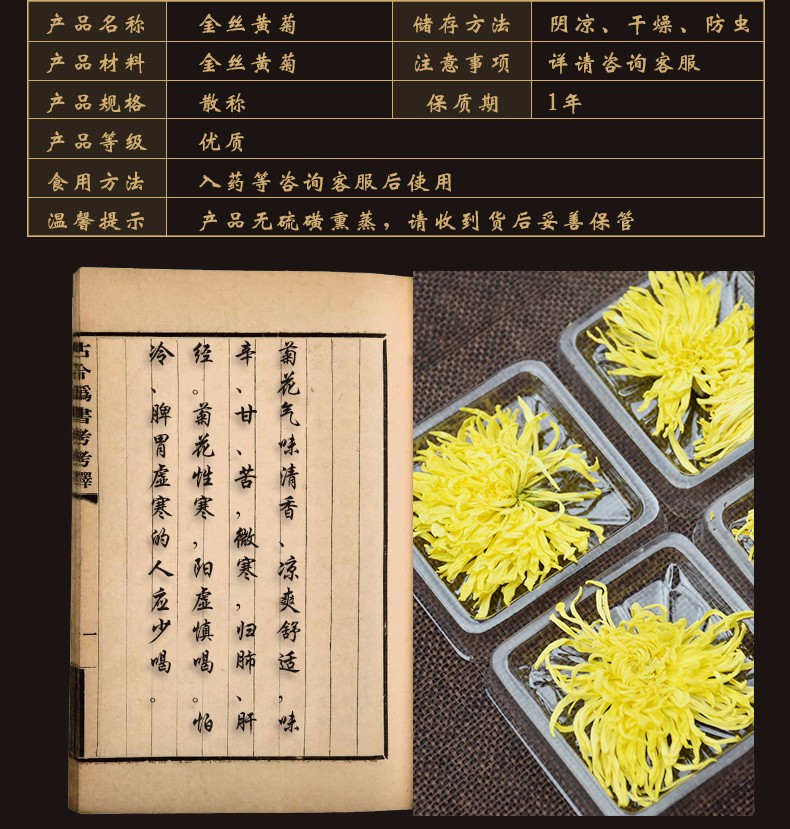 产品名称 金丝黄菊 储存方法 阴凉、干燥、防虫
产品材料 金丝黄菊 注意事项 详请咨询客服
产品规格 散称 保质期 1年
产品等级 优质
食用方法 入药等咨询客服后使用
温馨提示 产品无硫磺熏蒸，请收到货后妥善保管
菊花气味清香、凉爽舒适，味
辛、甘、苦，微寒，归肺、肝
经。菊花性寒，阳虚慎喝。怕
冷、脾胃虚寒的人应少喝。
書考考釋
一